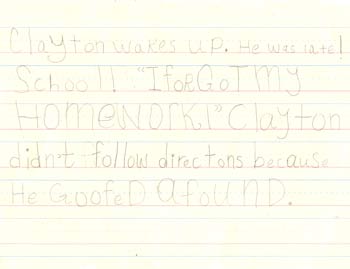 Clayton wakes up. He was late!
School! "I forGoT my
HomeworK!" Clayton
didn't follow directons because
He GoofeD arouND.